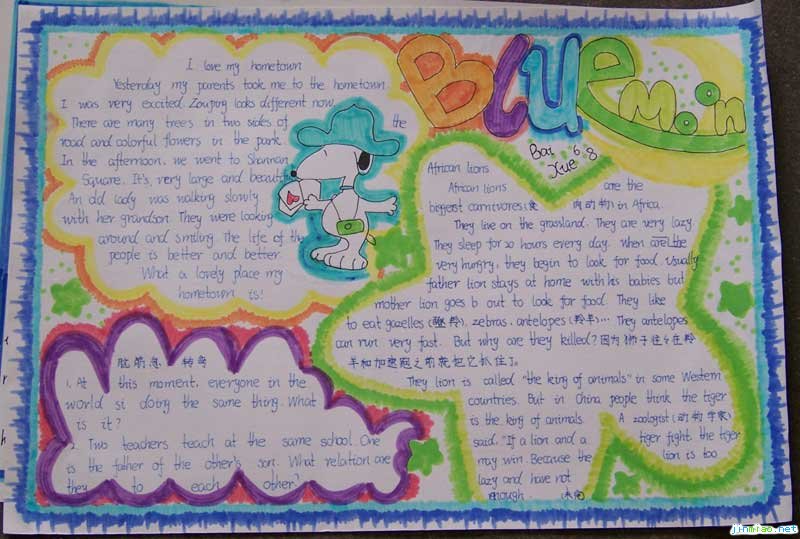 BLUE Moon
Bai 6.8
Xue
I love my hometown
Yesterday my parents took me to the hometown.
I was very excited. Zouping looks different now.
There are many trees in two sides of the
road and colorful flowers in the park.
In the afternoon, we went to Shannan
Square. It's very large and beautiful
An old lady was walking slowly
with her grandson. They were looking
around and smiling. The life of the
people is better and better.
What a lovely place my
hometown is!
脑筋急转弯
1. At this moment, everyone in the
world si doing the same thing. What
is it?
2. Two teachers teach at the same school. One
is the father of the other's son. What relation are
they to each other?
African lions
African lions are the
biggest carnivores(食肉动物) in Africa.
They live on the grassland. They are very lazy.
They sleep for 20 hours every day. When are the
very hungry, they begin to look for food. Usually
father lion stays at home with his babies but
mother lion goes b out to look for food. They like
to eat gazelles (瞪羚), zebras, antelopes (羚羊)... They antelopes
can run very fast. But why are they killed? 因为狮子往往在羚
羊和加速之前就把它抓住了。
They lion is called "the king of animals" in some Western
countries. But in China people think the tiger
is the king of animals. A zoologist (动物学家)
said, "If a lion and a tiger fight, the tiger
may win. Because the lion is too
lazy and have not
enough
jinmiao.net